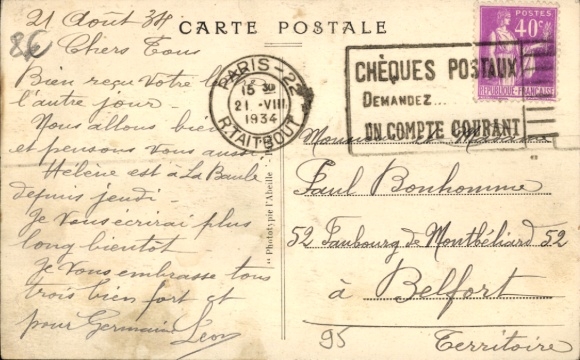 CARTE POSTALE
21 Août 34
8€
Chers Tous
Bien reçu votre
l'autre jour_
Nous allons bien
et pensons vous aussi
Hélène est à La Baule
depuis jeudi_
Je vous écrirai plus
long bientôt
Je vous embrasse tous
trois bien fort et
pour Germain Léon
"Phototypie l'Abeille"
PARIS-22
15 30
21 -VIII
1934
R. TAITBOUT
CHÈQUES POSTAUX
DEMANDEZ...
UN COMPTE COURANT
POSTES
40c
REPUBLIQUE-FRANÇAISE
Monsieur et
Paul Bonhomme
52 Faubourg de Montbéliard 52
à Belfort
95 Territoire